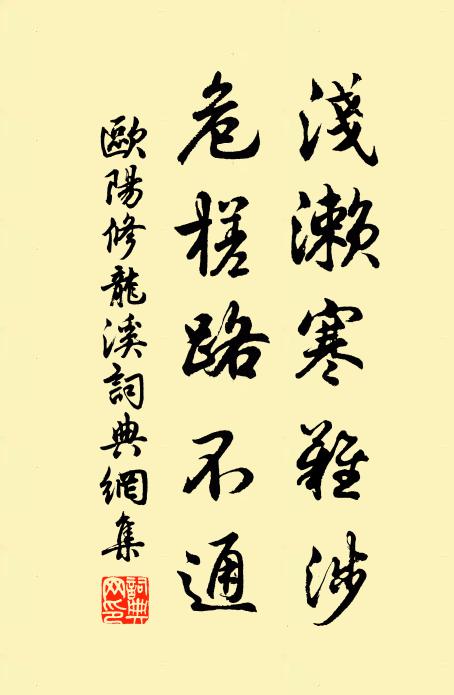 淺瀨寒難涉
危槎路不通
歐陽修龍溪詞典網集
詞典網印